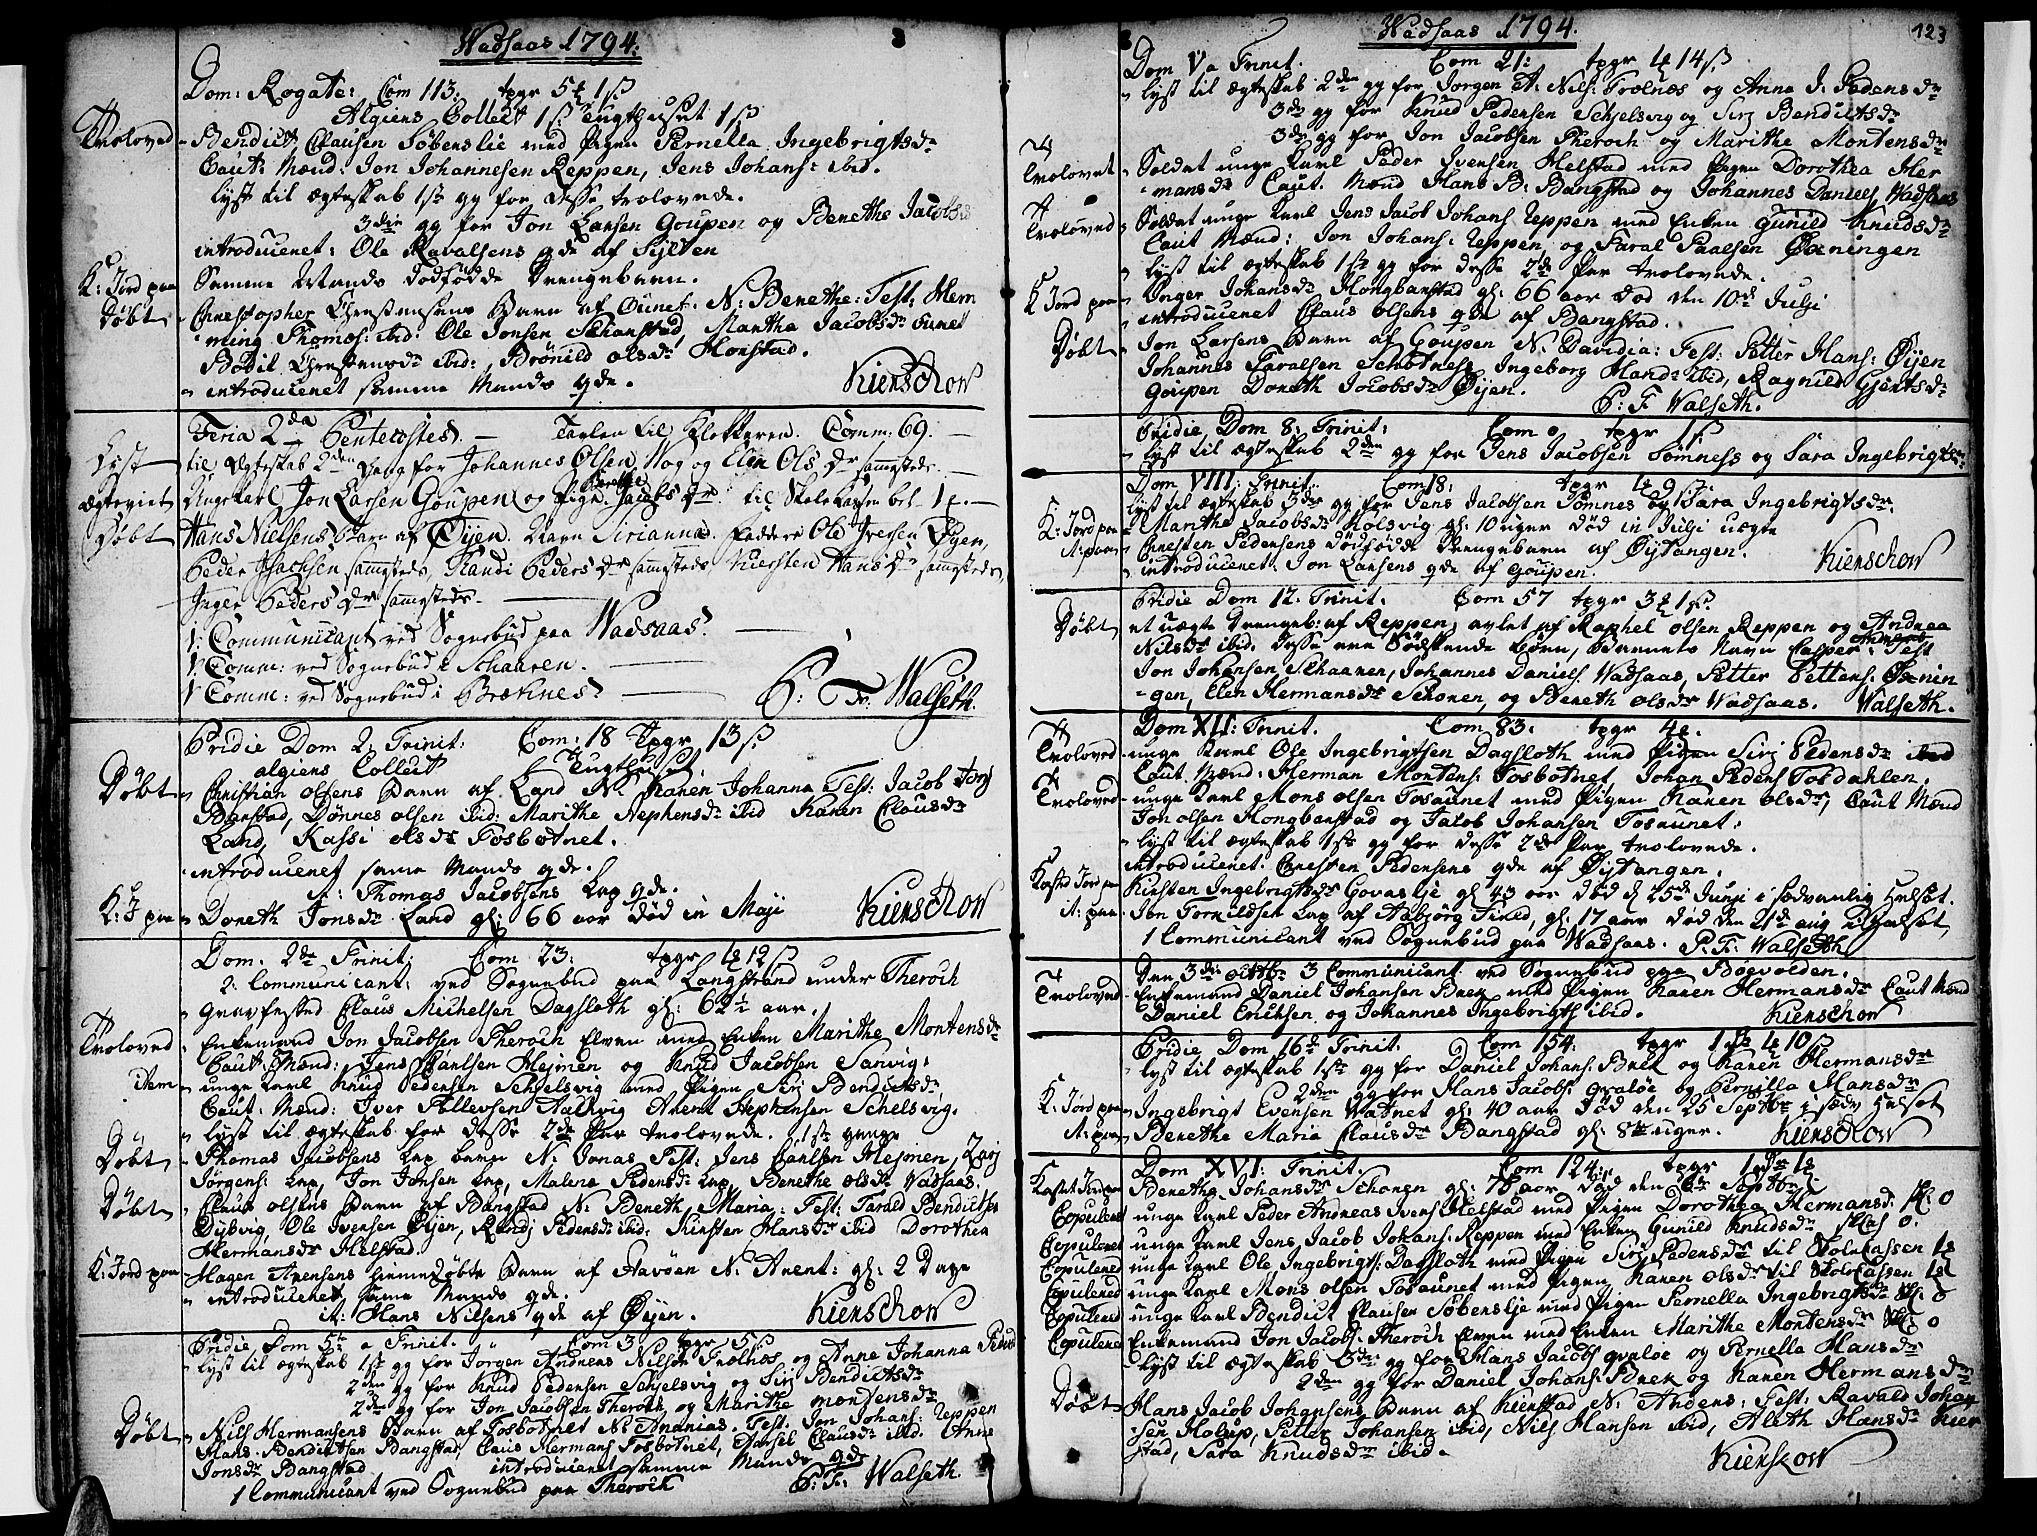 Wadsaas 1794.
Dom: Rogate: Com 113. tpgr 5 1 ß
Algiens Collect 1 ß Tugthuset 1 ß
Troloved Bendict Clausen Søbenslie med Pigen Pernella Ingebrigtsdr
Caut: Mænd: Jon Johannesen Reppen, Jens Johans: ibid.
lyst til ægteskab 1ste gg for desse trolovede.
3die gg for Jon Larsen Goupen og Benethe Jacobsdr
introduceret: Ole Ravalsens qde af Sylten
K: Jord paa Samme Mands dødfødde Drengebarn.
Døbt Christopher Christensens Barn af N: Benethe: Test: Hem
ming Thomas: ibid: Ole Jonsen Schanstad, Martha Jacobsdr
Bodil Christensdr ibid: Brønild olsdr Horstad.
introduceret samme Mands qde. Kierschow
Feria 2da Pentecostes. — Tavlen til Klokkeren. Comm: 69. —
Lyst til Ægteskab 2den Gang for Johannes Olsen Wog og Elen Ols dr samsteds. —
ægteviet Ungekarl Jon Larsen Goupen og Pige Berethe Jacobs dr til Skolekassen bet. 1
Døbt Hans Nielsens Barn af Øyen. Navn Sirianna. Faddere Ole Iversen Øyen,
Peder Isachsen samsteds, Randi Peders dr samsteds Kiersten Hans dr samsteds,
Inger Peders dr samsteds. —
1. Communicant ved Sognebud paa Wadsaas. —
1. Comm: ved Sognebud i Schaaren. —
1 Comm: ved Sognebud i Breknes. — P: Fr. Walseth.
Pridie Dom 2. Trinit: Com: 18 tpgr 13 ß
algiens Collect Tugthuset
Døbt Christian olsens Barn af Land N. Karen Johanna Test: Jacob
Barstad, Dønnes olsen ibid: Marithe Nephensdr ibid Karen Clausdr
Land, Kassi olsdr Fosbotnet.
introduceret samme Mands qde.
it: Thomas Jacobsens Lap qde.
K: J paa Doreth Jonsdr Land gl: 66 aar død in Maji Kierschow
Dom. 2de Trinit: Com 23: tpgr 12 ß
2. Communicant: ved Sognebud paa Langstrand under Theroch
Gravfested Claus Michelsen Dagsloth gl: 62½ aar.
Troloved Enkemand Jon Jacobsen Theroch Elven med Enken Marithe Montensdr
Caut: Mænd: Jens Carlsen Hejmen og Knud Jacobsen Sanvig.
item unge karl Knud Pedersen Schjelsvig med Pigen Siri Bendictsdr
Caut: Mænd: Iver Pollevsen Aallvig Arent Stephensen Schelsvig.
lyst til ægteskab for desse 2de Par trolovede. 1ste gange
Døbt Thomas Jacobsens Lap barn N: Jonas Test: Jens Carlsen Hejmen,
Jørgens: Lap, Jon Jonsen Lap, Malena Pedersdr Lap, Benethe olsdr Wadsaas.
Døbt Claus olsens Barn af Bangstad N: Beneth Maria: Test: Tarald Bendictsen
Dybvig, Ole Iversen Øyen, Randj Pedersdr ibid: Kirsten Hansdr ibid Dorothea
Hermansdr Helstad.
K: Jord paa Hagen Arensens hiemedøbte Barn af Havøen N: Arent: gl: 2 Dage
introduceret, samme Mands qde.
it: Hans Nilsens qde af Øyen. Kierschow
Pridie, Dom 5te a Trinit. Com 3 tpgr 5 ß
lyst til ægteskab 1ste gg for Jorgen Andreas Nilsen Trolnes og Anne Johanna
2den gg for Knud Pedersen Schjelsvig og Siri Bendictsdr
2de gg for Jon Jacobsen Theroch og Marithe Montensdr
Døbt Nils Hermansens Barn af Fosbotnet N: Ananias. Test. Jon Johans: Reppen
Hans Bendictsen Bangstad, Claus Hermans Fosbotnet, Clausdr ibid. Anne
Jonsdr Bangstad introduceret samme Mands qde.
1 Communicant ved Sognebud paa Theroch P: Fr: Walseth.
Wadsaas 1794. 123
Dom V a Trinit. Com 21: tpgr 14 ß
lyst til ægteskab 2den gg for Jorgen A: Nils: Trolnes og Anna J. Pedersdr
3die gg for Knud Pedersen Schjelsvig og Siri Bendictsdr
3die gg for Jon Jacobsen Theroch og Marithe Montensdr
Trolovet Soldat unge Karl Peder Iversen Helstad med Pigen Dorothea Her
mansdr Caut. Mænd Hans B: Bangstad og Johannes Daniels Wadsaas
Trolovet Soldat unge Karl Jens Jacob Johans Reppen med Enken Gunild Knudsdr
Caut Mænd: Jon Johans: Reppen og Taral Paalsen Øxningen
lyst til ægteskab 1ste gg for desse 2de Par trolovede.
K Jord paa Inger Johansdr Hongbarstad gl: 66 aar død den 10de Julji
introduceret Claus olsens qde af Bangstad.
Døbt Jon Larsens Barn af Goupen N: Davidia: Test: Petter Hans: Øyen
Johannes Taralsen Schotnes, Ingeborg Hansdr ibid, Ragnild Gjertsdr
Goupen Doreth Jocobsdr Øyen. P. F Walseth.
Pridie Dom 8: Trinit: Com 0 tpgr 1 ß.
lyst til ægteskab 2den gg for Jens Jacobsen Sømness og Sara Ingebrigtsdr.
Dom VIII: Trinit: Com 18: tpgr 9 ß
lyst til ægteskab 3die gg for Jens Jacobsen Sømnes og Sara Ingebrigtsdr.
K: Jord paa Marithe Jacobsdr Holsvig gl: 10 uger død in Julji uægte
it: paa Chresten Pedersens dødfødde Drengebarn af Øytangen.
introduceret. Jon Larsens qde af Goupen. Kierschow
Pridie Dom 12. Trinit. Com 57 tpgr 3 1 ß.
Døbt et uægte Drengeb: af Reppen, avlet af Raphel olsen Reppen og Andrea
Nilsdr ibid. Desse ere Sødskende Børn, Barnets Navn Casper Andreas: Test
Jon Johansen Schaaren, Johannes Daniels: Wadsaas, Petter Petters: Øxnin
gen, Elen Hermansdr Schonen, og Beneth olsdr Wadsaas. Walseth.
Dom XII: Trinit. Com 83. tpgr 4
Trolovet unge Karl Ole Ingebrigtsen Dagsloth med Pigen Siri Pedersdr ibid
Caut. Mænd: Herman Montens: Fosbotnet, Johan Peders Tordahlen.
Trolovet unge Karl Mons olsen Tosaunet med Pigen Karen olsdr, Caut Mænd
Jon olsen Hongbarstad og Jacob Johansen Tosaunet.
lyst til ægteskab 1ste gg for desse 2de Par trolovede.
introduceret: Chresten Pedersens qde af Øytangen.
Kasted Jord paa Kirsten Ingebrigtsdr Govaslje gl: 43 aar død d 25de Junji i sædvanlig Helsot.
it: paa Jon Tornildsen Lap af Aabjørg Fireld, gl: 17 aar død den 21de aug
1 Communicant ved Sognebud paa Wadsaas. P: F: Walseth
Den 3die octbr 3 Communicant ved Sognebud paa Bøevolden.
Trolovet Enkemand Daniel Johansen Brek med Pigen Karen Hermansdr Caut Mænd
Daniel Ericksen og Johannes Ingebrigts ibid. Kierschow
Pridie Dom 16de Trinit: Com 154: tpgr 1 10 ß
lyst til ægteskab 1ste gg for Daniel Johans: Brek og Karen Hermansdr
2den gg for Hans Jacobs: qvaløe og Pernilla Hansdr
K: Jord paa Ingebrigt Evensen Watnet gl: 40 aar død den 25 Septbr i sædv Helsot
it: paa Benethe Maria Clausdr Bangstad gl: 8te uger. Kierschow
Dom XVI: Trinit. Com 124: tpgr 1
Kastet Jord paa Benetha Johansdr Schonen gl: 78 aar død den Septbr
Copulered unge Karl Peder Andreas Ivers Helstad med Pigen Dorothea Hermansd: 0
Copulered unge Karl Jens Jacob Johans: Reppen med Enken Gunild Knudsdr 0.
Copulered unge Karl Ole Ingebrigts: Dagsloth med Pigen Siri Pedersdr til Skolekassen 1
Copulered unge Karl Mons olsen Tosaunet med Pigen Karen olsdr til Skolekassen
Copulered unge Karl Bendict Clausen Søbenslje med Pigen Pernella Ingebrigtsdr 0
Copulered Enkemand Jon Jacobs: Theroch Elven med Enken Marithe Montensdr 0
lyst til ægteskab 3die gg for Hans Jacobs qvaløe og Pernella Hansdr
2den gg for Daniel Johans: Brek og Karen Hermansdr
Døbt Hans Jacob Johansens Barn af Kierstad N: Anders: Test: Ravald Johan
sen Holup, Petter Johansen ibid, Nils Hansen ibid, Aleth Hansdr Kier
stad, Sara Knudsdr ibid.
Kierskow